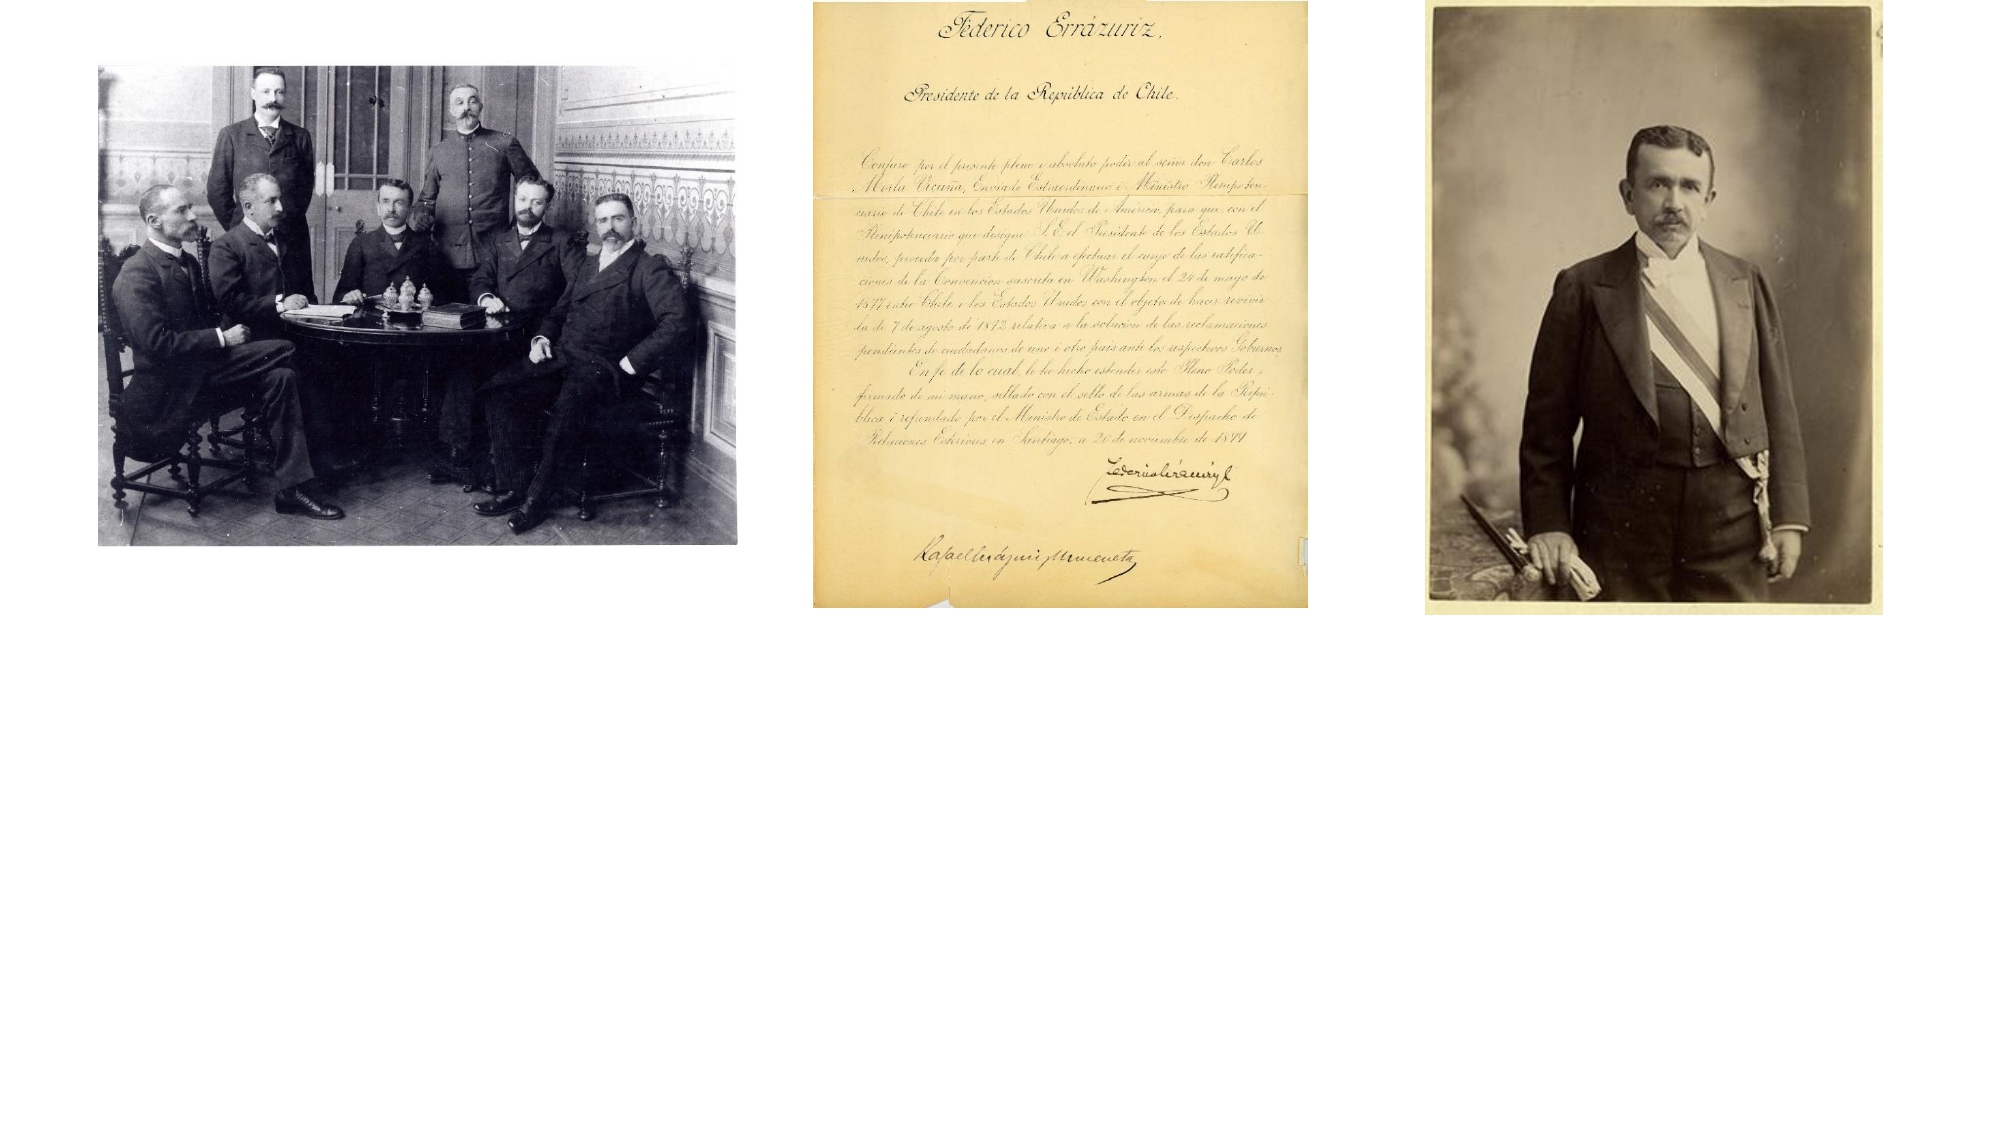 Federico Errázuriz.
Presidente de la República de Chile.
Confiero por el presente pleno i absoluto poder al señor don Carlos
Morla Vicuña, Enviado Estraordinario i Ministro Plenipoten-
ciario de Chile en los Estados Unidos de América, para que, con el
Plenipotenciario que designe S. E. el Presidente de los Estados U-
nidos, proceda por parte de Chile a efectuar el canje de las ratifica-
ciones de la Convencion suscrita en Washington el 24 de mayo de
1897 entre Chile i los Estados Unidos con el objeto de hacer revivir
la de 7 de agosto de 1892 relativa a la solucion de las reclamaciones
pendientes de ciudadanos de uno i otro pais ante los respectivos Gobiernos.
En fe de lo cual, he hecho estender este Pleno Poder,
firmado de mi mano, sellado con el sello de las armas de la Repú-
blica i refrendado por el Ministro de Estado en el Despacho de
Relaciones Esteriores en Santiago, a 20 de noviembre de 1899